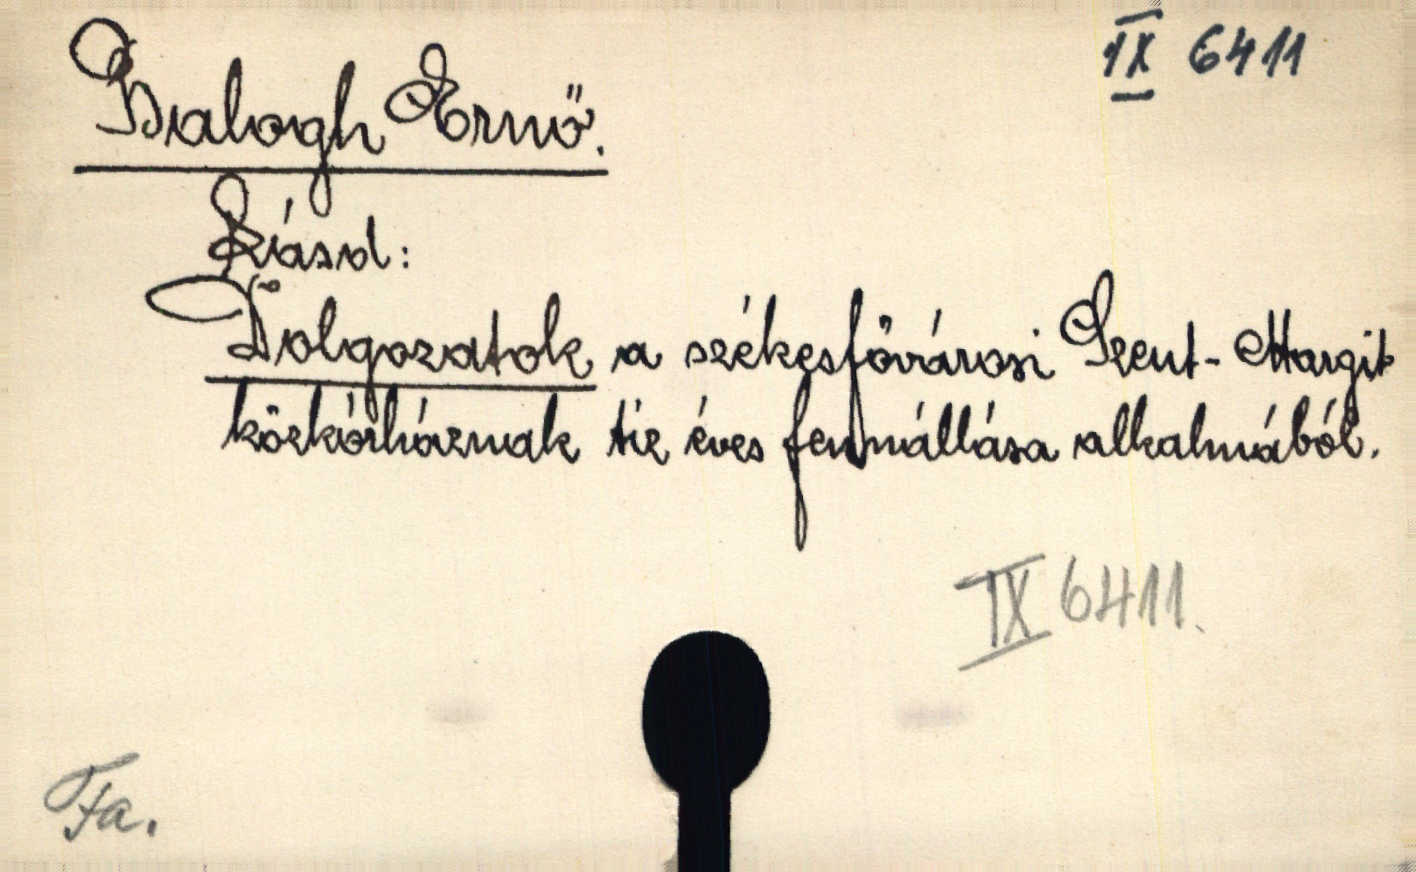 IX 6411
Balogh Ernő.
Kiásd:
Dolgozatok a székesfővárosi Szent-Margit
közkórháznak tiz éves fennállása alkalmából.
IX 6411.
Fa.